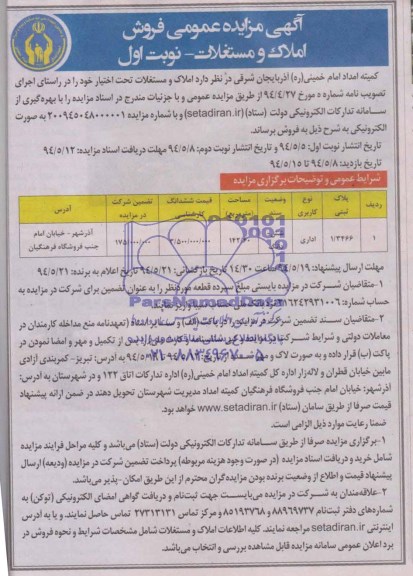 آگهی مزایده عمومی فروش
املاک و مستغلات - نوبت اول
کمیته امداد امام خمینی(ره) آذربایجان شرقی در نظر دارد املاک و مستغلات تحت اختیار خود را در راستای اجرای
تصویب نامه شماره ۵ مورخ ۹۴/۴/۲۷ از طریق مزایده عمومی و با جزئیات مندرج در اسناد مزایده را با بهره‌گیری از
سامانه تدارکات الکترونیکی دولت (ستاد)(setadiran.ir) و با شماره مزایده ۲۰۰۹۴۵۰۴۸۰۰۰۰۰۱ به صورت
الکترونیکی به شرح ذیل به فروش برساند.
تاریخ انتشار نوبت اول: ۹۴/۵/۵ و تاریخ انتشار نوبت دوم: ۹۴/۵/۸ مهلت دریافت اسناد مزایده: ۹۴/۵/۱۲
تاریخ بازدید: ۹۴/۵/۸ تا ۹۴/۵/۱۵
شرایط عمومی و توضیحات برگزاری مزایده
ردیف پلاک ثبتی نوع کاربری وضعیت مساحت قیمت ششدانگ کارشناسی تضمین شرکت در مزایده آدرس
۱ ۱/۳۴۶۶ اداری ۳/۵۰۰/۰۰۰/۰۰۰ ۱۷۵/۰۰۰/۰۰۰ آذرشهر - خیابان امام جنب فروشگاه فرهنگیان
مهلت ارسال پیشنهاد: ۹۴/۵/۱۹ ساعت ۱۴/۳۰ تاریخ بازگشایی: ۹۴/۵/۲۱ تاریخ اعلام به برنده: ۹۴/۵/۲۱
۱- متقاضیان شرکت در مزایده بایستی مبلغ سپرده قطعه موردنظر را به عنوان تضمین برای شرکت در مزایده به
حساب شماره:
۲- متقاضیان سند تضمین شرکت در مزایده را در پاکت (الف) و سایر اسناد (تعهدنامه منع مداخله کارمندان در
معاملات دولتی و شرایط شرکت پس از تکمیل و مهر و امضا نمودن در
پاکت (ب) قرار داده و به صورت لاک و مهر شده به آدرس: تبریز- کمربندی آزادی
مابین خیابان قطران و لاله‌زار اداره کل کمیته امداد امام خمینی(ره) اداره تدارکات اتاق ۱۲۲ و در شهرستان به آدرس:
آذرشهر: خیابان امام جنب فروشگاه فرهنگیان کمیته امداد مدیریت شهرستان تحویل دهند در ضمن ارائه پیشنهاد
قیمت صرفا از طریق سامان (ستاد) www.setadiran.ir خواهد بود.
ضمنا رعایت موارد ذیل الزامی است.
۱-برگزاری مزایده صرفا از طریق سامانه تدارکات الکترونیکی دولت (ستاد) می‌باشد و کلیه مراحل فرایند مزایده
شامل خرید و دریافت اسناد مزایده (در صورت وجود هزینه مربوطه) پرداخت تضمین شرکت در مزایده (ودیعه) ارسال
پیشنهاد قیمت و اطلاع از وضعیت برنده بودن مزایده‌گران محترم از این طریق امکان-پذیر می‌باشد.
۲-علاقه‌مندان به شرکت در مزایده می‌بایست جهت ثبت‌نام و دریافت گواهی امضای الکترونیکی (توکن) به
شماره‌های دفتر ثبت‌نام ۸۸۹۶۹۷۳۷ و ۸۵۱۹۳۷۶۸ و مرکز تماس ۲۷۳۱۳۱۳۱ تماس حاصل نمایند. و یا به آدرس
اینترنتی setadiran.ir مراجعه نمایند. کلیه اطلاعات املاک و مستغلات شامل مشخصات شرایط و نحوه فروش در
برد اعلان عمومی سامانه مزایده قابل مشاهده بررسی و انتخاب می‌باشد.
ParsNamadData
۰۲۱-۸۸۳۴۹۶۷۰-۵